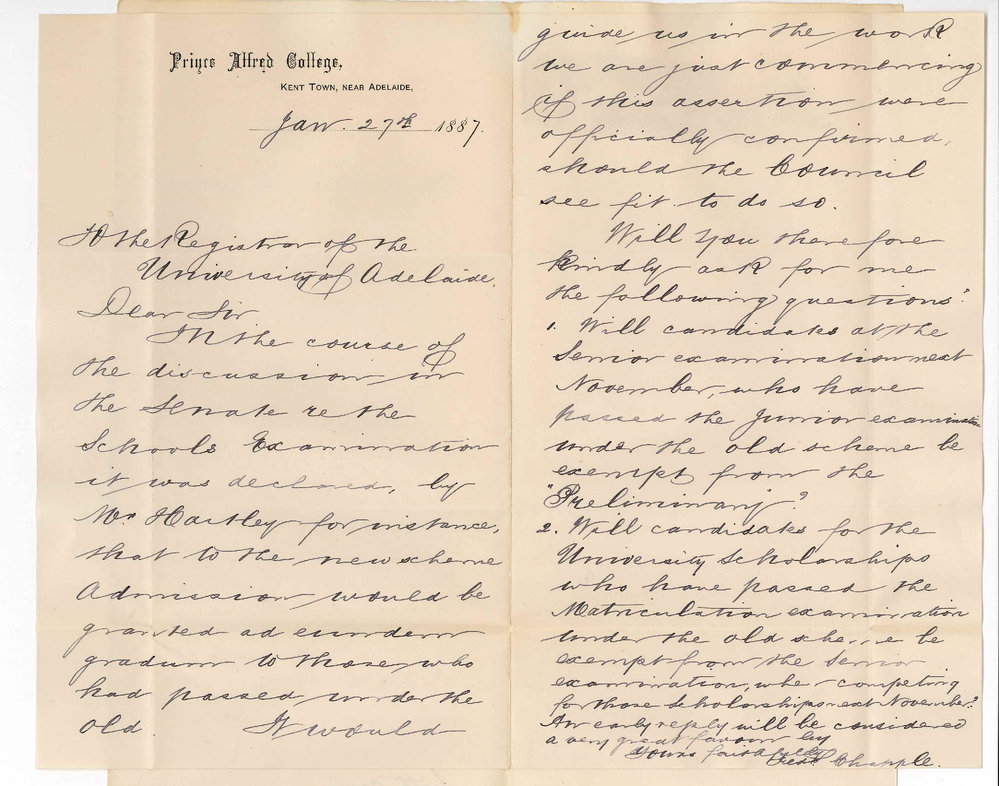 Prince Alfred College,
KENT TOWN, NEAR ADELAIDE,
Jan. 27th 1887.
To the Registrar of the
University of Adelaide.
Dear Sir
In the course of
the discussion in
the Senate re the
Schools Examination
it was declared, by
Mr Hartley for instance,
that to the new scheme
Admission would be
granted ad eundem
gradum to those who
had passed under the
old. It would
guide us in the work
we are just commencing
if this assertion were
officially confirmed,
should the Council
see fit to do so.
Will you therefore
kindly ask for me
the following questions?
1. Will candidates at the
Senior examination next
November, who have
passed the Junior examination
under the old scheme be
exempt from the
"Preliminary"?
2. Will candidates for the
University Scholarships
who have passed the
Matriculation examination
under the old scheme be
exempt from the Senior
examination, when competing
for those Scholarships next November?
An early reply will be considered
a very great favour by
Yours faithfully
Fredk Chapple.